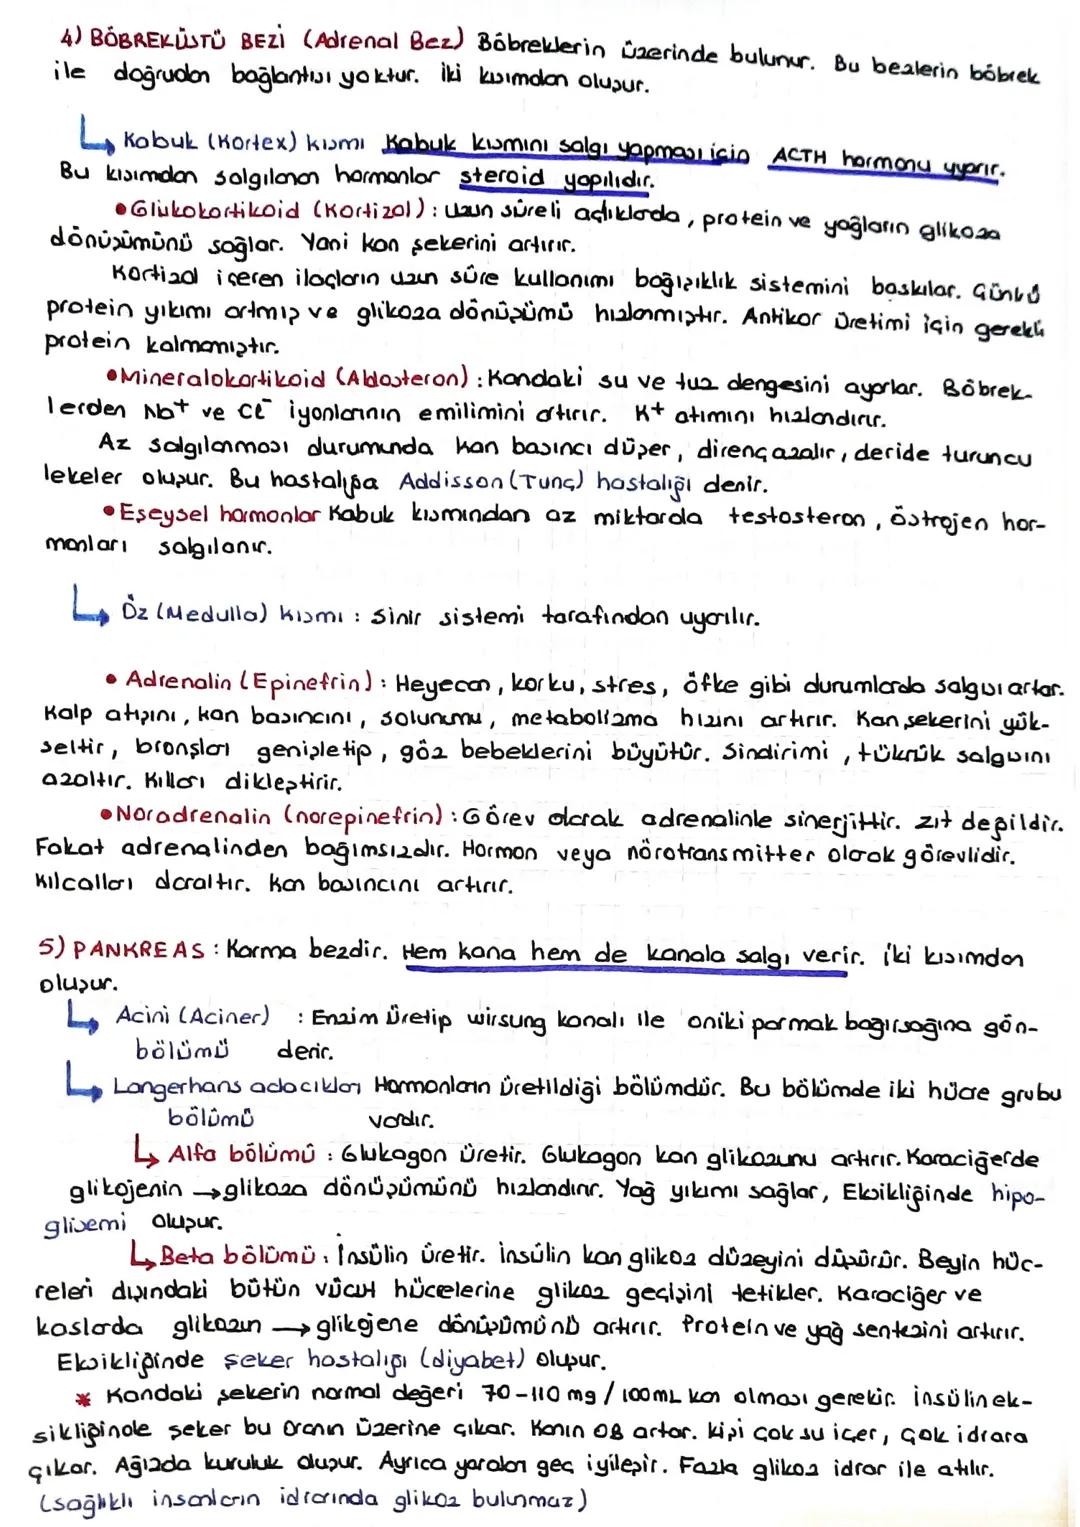 4) BÖBREKÜSTÜ BEZİ (Adrenal Bez) Böbreklerin üzerinde bulunur. Bu bezlerin böbrek
ile doğrudan bağlantısı yoktur. İki kısımdan oluşur.
Kabuk (Kortex) kısmı Kabuk kısmını salgı yapması için ACTH hormonu uyarır.
Bu kısımdan salgılanan hormonlar steroid yapılıdır.
• Glukokortikoid (Kortizol) : Uzun süreli açlıklarda, protein ve yağların glikoza
dönüşümünü sağlar. Yani kan şekerini artırır.
Kortizol içeren ilaçların uzun süre kullanımı bağışıklık sistemini baskılar. Günkü
protein yıkımı artmış ve glikoza dönüşümü hızlanmıştır. Antikor üretimi için gerekli
protein kalmamıştır.
• Mineralokortikoid (Aldosteron) : Kandaki su ve tuz dengesini ayarlar. Böbrek-
lerden Na+ ve Cl- iyonlarının emilimini artırır. K+ atımını hızlandırır.
Az salgılanması durumunda kan basıncı düşer, direnç azalır, deride turuncu
lekeler oluşur. Bu hastalığa Addisson (Tunç) hastalığı denir.
• Eşeysel hormonlar Kabuk kısmından az miktarda testosteron, östrojen hor-
monları salgılanır.
Öz (Medulla) kısmı : Sinir sistemi tarafından uyarılır.
• Adrenalin (Epinefrin) : Heyecan, korku, stres, öfke gibi durumlarda salgısı artar.
Kalp atışını, kan basıncını, solunumu, metabolizma hızını artırır. Kan şekerini yük-
seltir, bronşları genişletip, göz bebeklerini büyütür. Sindirimi, tükrük salgısını
azaltır. Kılları dikleştirir.
• Noradrenalin (norepinefrin) : Görev olarak adrenalinle sinerjittir. zıt değildir.
Fakat adrenalinden bağımsızdır. Hormon veya nörotransmitter olarak görevlidir.
Kılcalları daraltır. Kan basıncını artırır.
5) PANKREAS : Karma bezdir. Hem kana hem de kanala salgı verir. İki kısımdan
oluşur.
Acini (Aciner) : Enzim üretip wirsung kanalı ile oniki parmak bağırsağına gön-
bölümü derir.
Langerhans adacıkları Hormonların üretildiği bölümdür. Bu bölümde iki hücre grubu
bölümü vardır.
Alfa bölümü : Glukagon üretir. Glukagon kan glikozunu artırır. Karaciğerde
glikojenin → glikoza dönüşümünü hızlandırır. Yağ yıkımı sağlar, Eksikliğinde hipo-
glisemi oluşur.
Beta bölümü : İnsülin üretir. İnsülin kan glikoz düzeyini düşürür. Beyin hüc-
releri dışındaki bütün vücut hücrelerine glikoz geçişini tetikler. Karaciğer ve
kaslarda glikozun → glikojene dönüşümünü artırır. Protein ve yağ sentezini artırır.
Eksikliğinde şeker hastalığı (diyabet) oluşur.
* Kandaki şekerin normal değeri 70-110 mg / 100mL kan olması gerekir. İnsülin ek-
sikliğinde şeker bu oranın üzerine çıkar. Kanın OB artar. kişi çok su içer, çok idrara
çıkar. Ağızda kuruluk oluşur. Ayrıca yaraları geç iyileşir. Fazla glikoz idrar ile atılır.
(sağlıklı insanların idrarında glikoz bulunmaz)